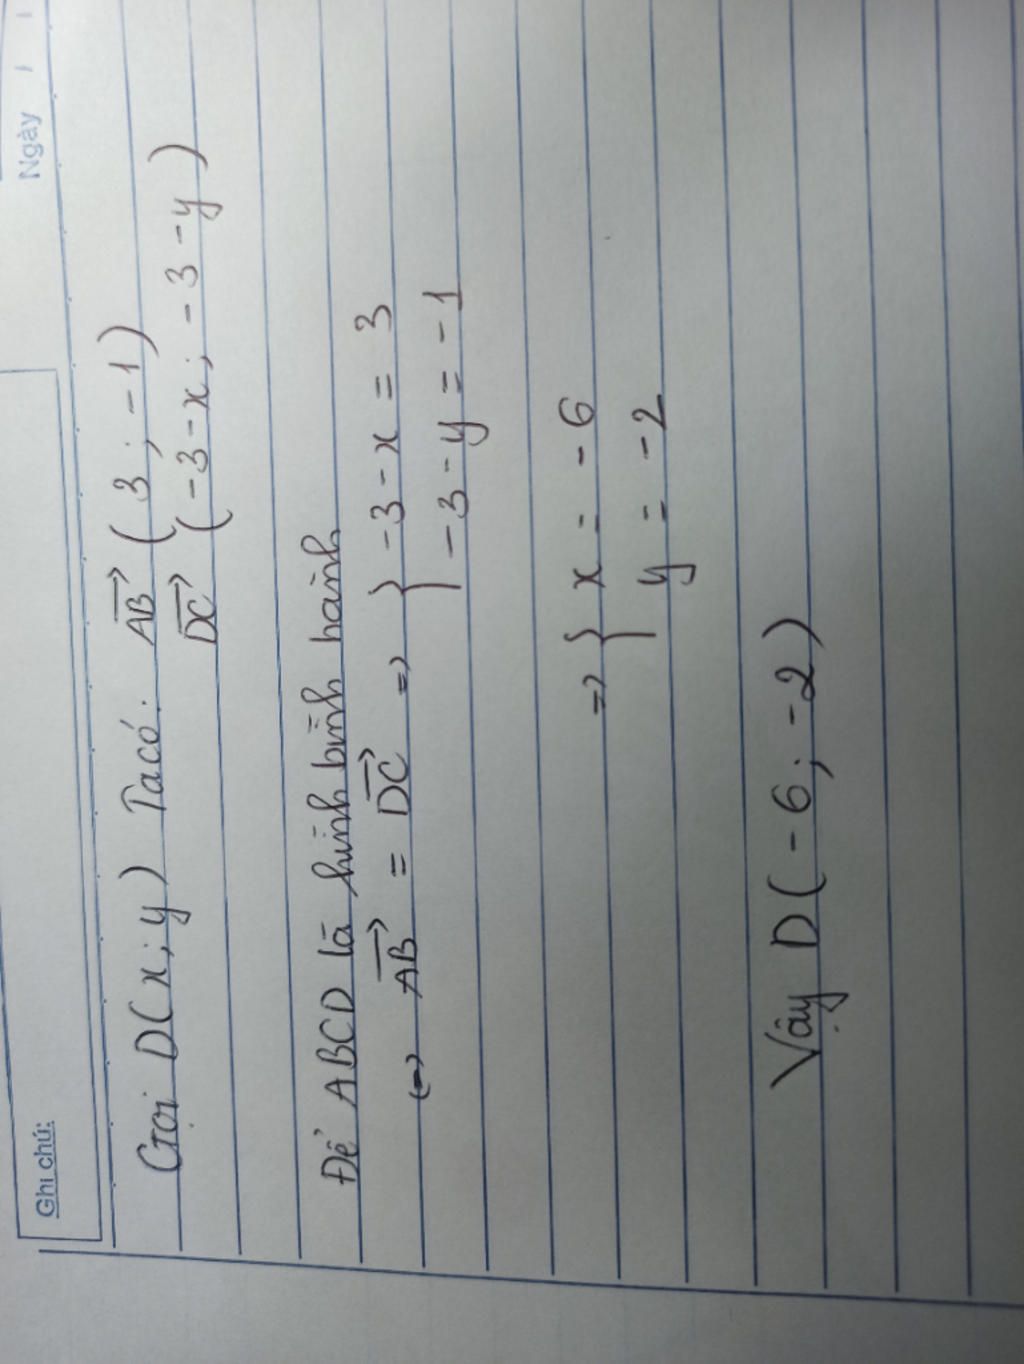 Ghi chú:
Ngày / /
Gọi D(x; y) Ta có. AB→ (3; -1)
DC→ (-3-x; -3-y)
Để ABCD là hình bình hành
(=) AB→ = DC→ => { -3-x = 3
-3-y = -1
=> { x = -6
y = -2
Vậy D(-6; -2)